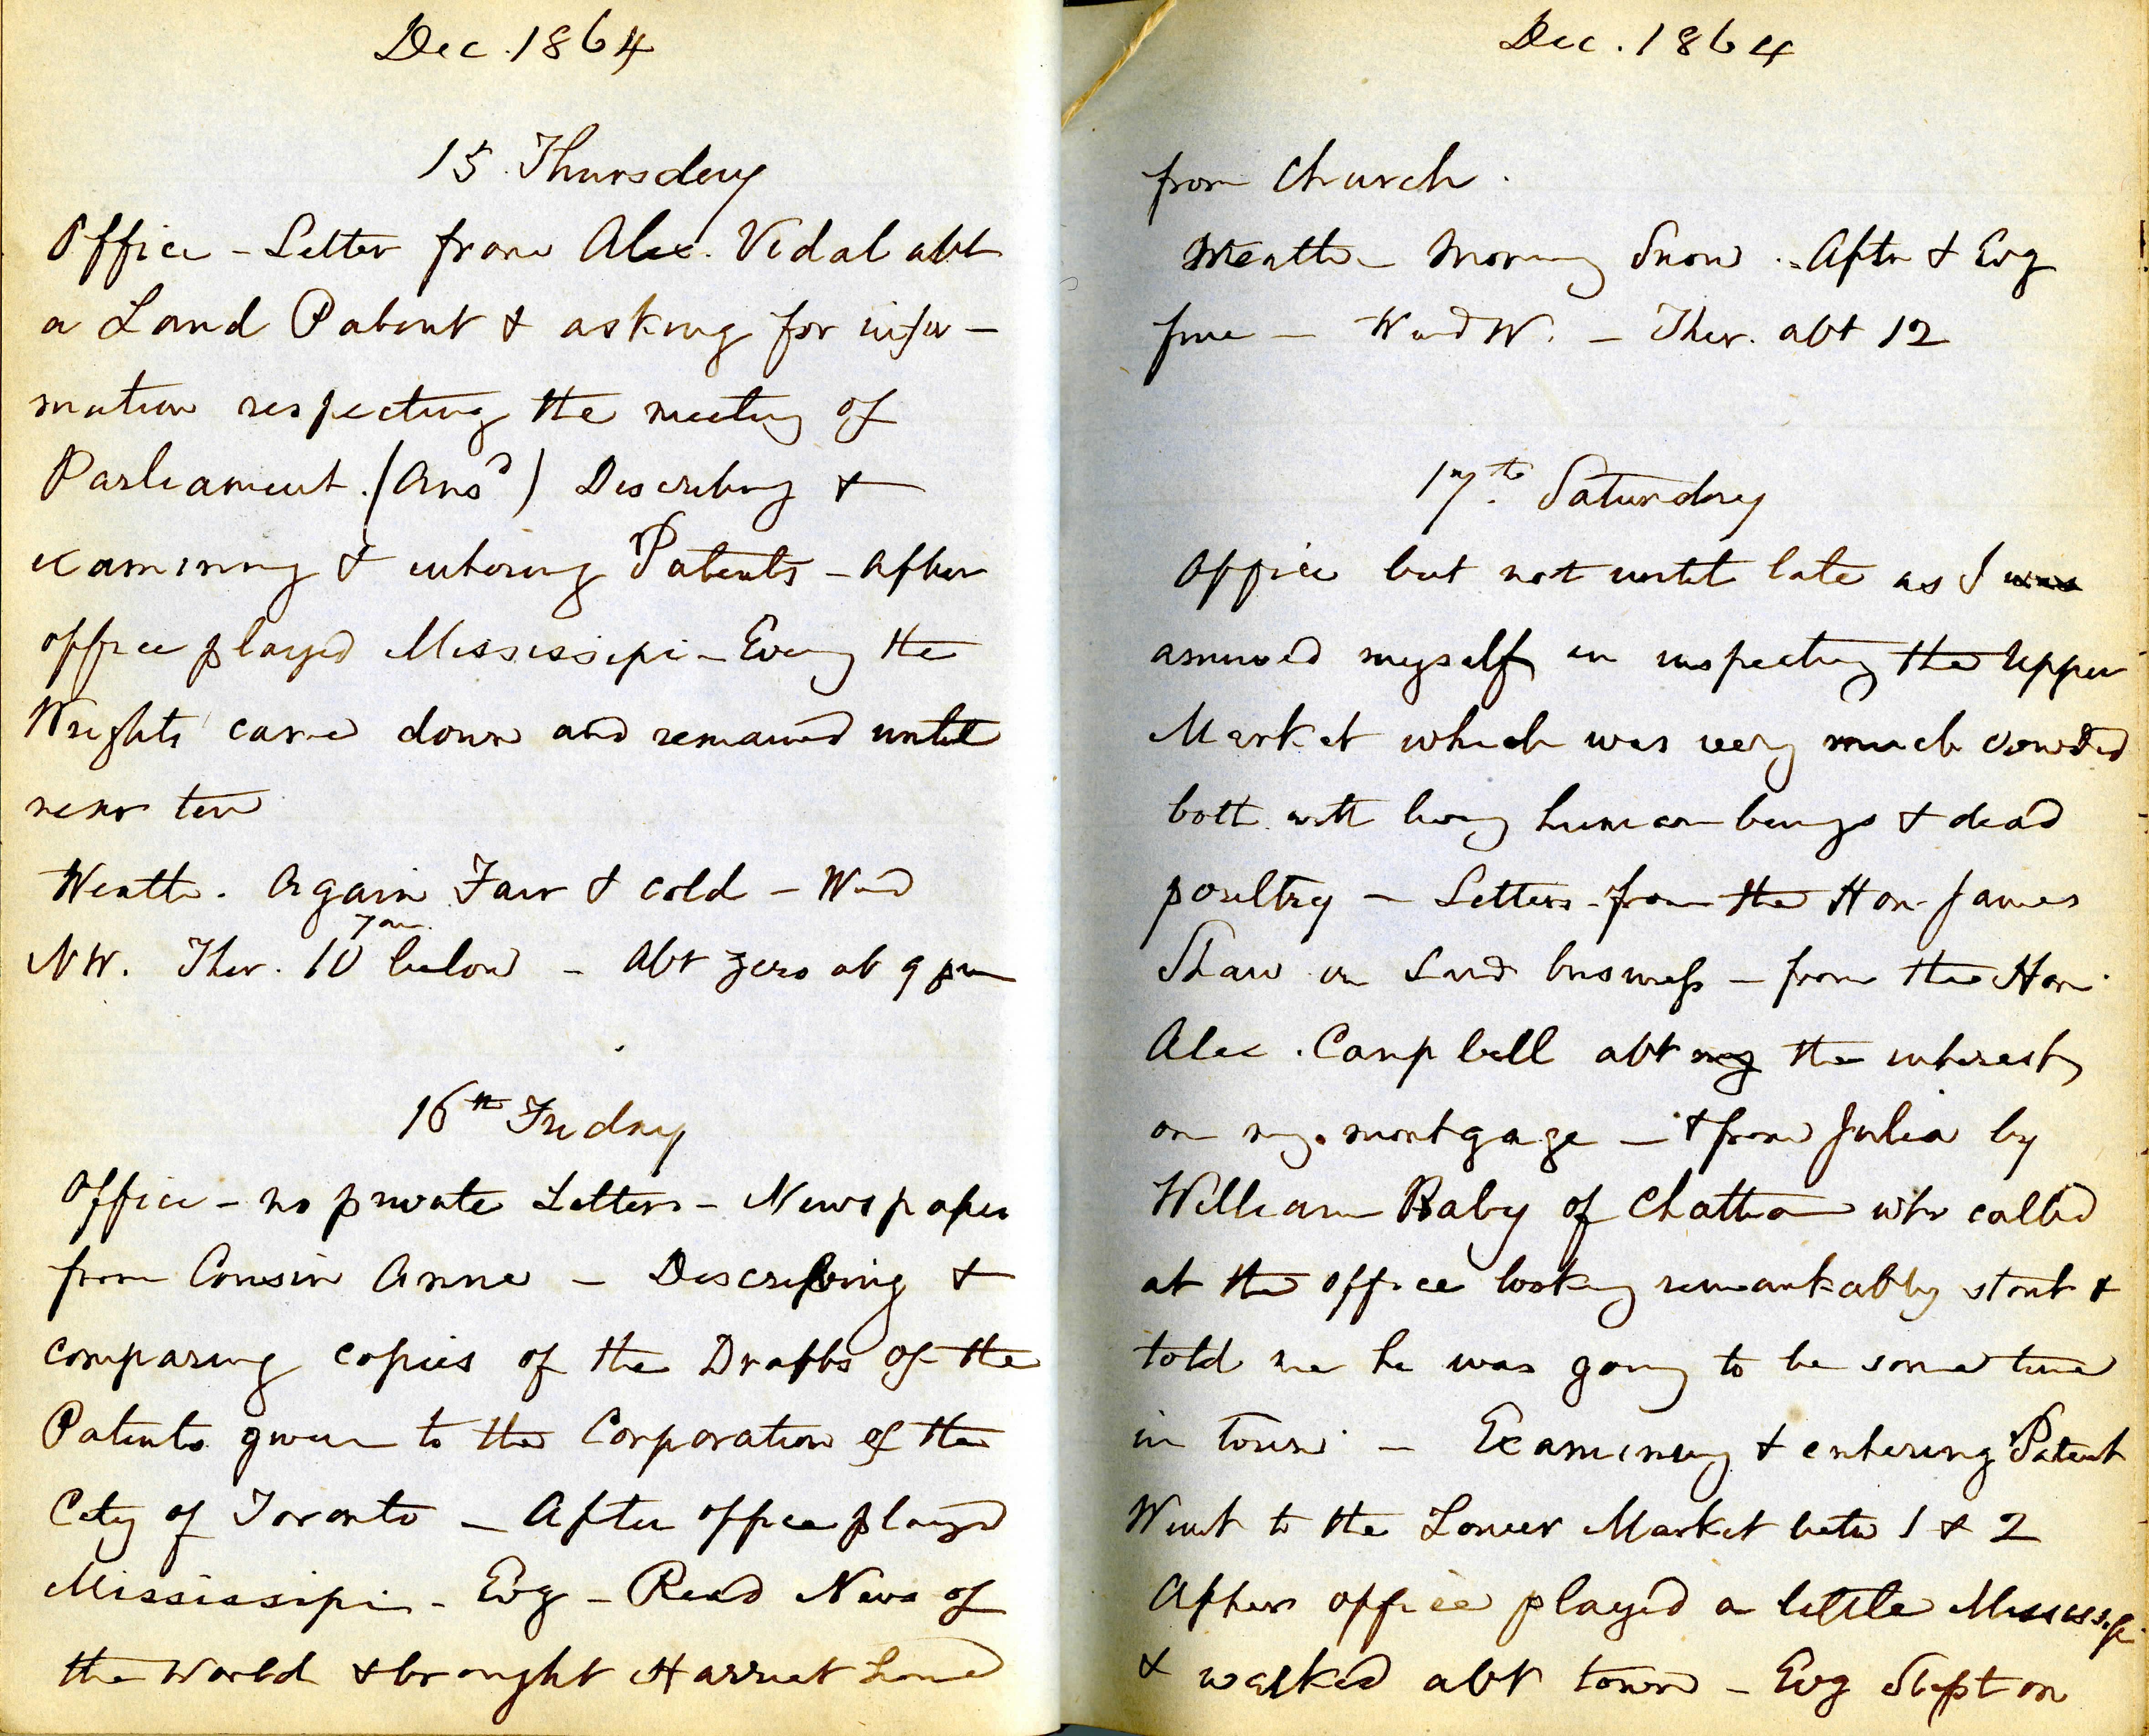 Dec. 1864
15 Thursday
Office - Letter from Alex. Vidal abt
a Land Patent & asking for infor-
mation respecting the meeting of
Parliament. (Ansd) Describing &
examining & entering Patents - After
office played Mississipi - Eveng the
Wrights came down and remained until
near ten
Weathr. Again Fair & cold - Wind
7 am.
NW. Ther. 10 below - Abt zero at 9 pm
16th Friday
Office - no private Letters - Newspaper
from Cousin Anne - Describing &
comparing copies of the Drafts of the
Patents given to the Corporation of the
City of Toronto - After office played
Mississipi - Evg - Read News of
the World & brought Harriet home
Dec. 1864
from Church.
Weather Morning Snow - Aftn & Evg
fine - Wind W. - Ther. abt 12
17th Saturday
Office but not until late as I was
amused myself in inspecting the Upper
Market which was very much crowded
both with living human beings & dead
poultry - Letters from the Hon James
Shaw on Land business - from the Hon
Alex. Campbell abt my the interest
on my mortgage - & from Julia by
William Baby of Chatham who called
at the office looking remarkably stout &
told me he was going to be some time
in town - Examining & entering Patent
Went to the Lower Market betn 1 & 2
After office played a little Mississipi
& walked abt town - Evg Slept on